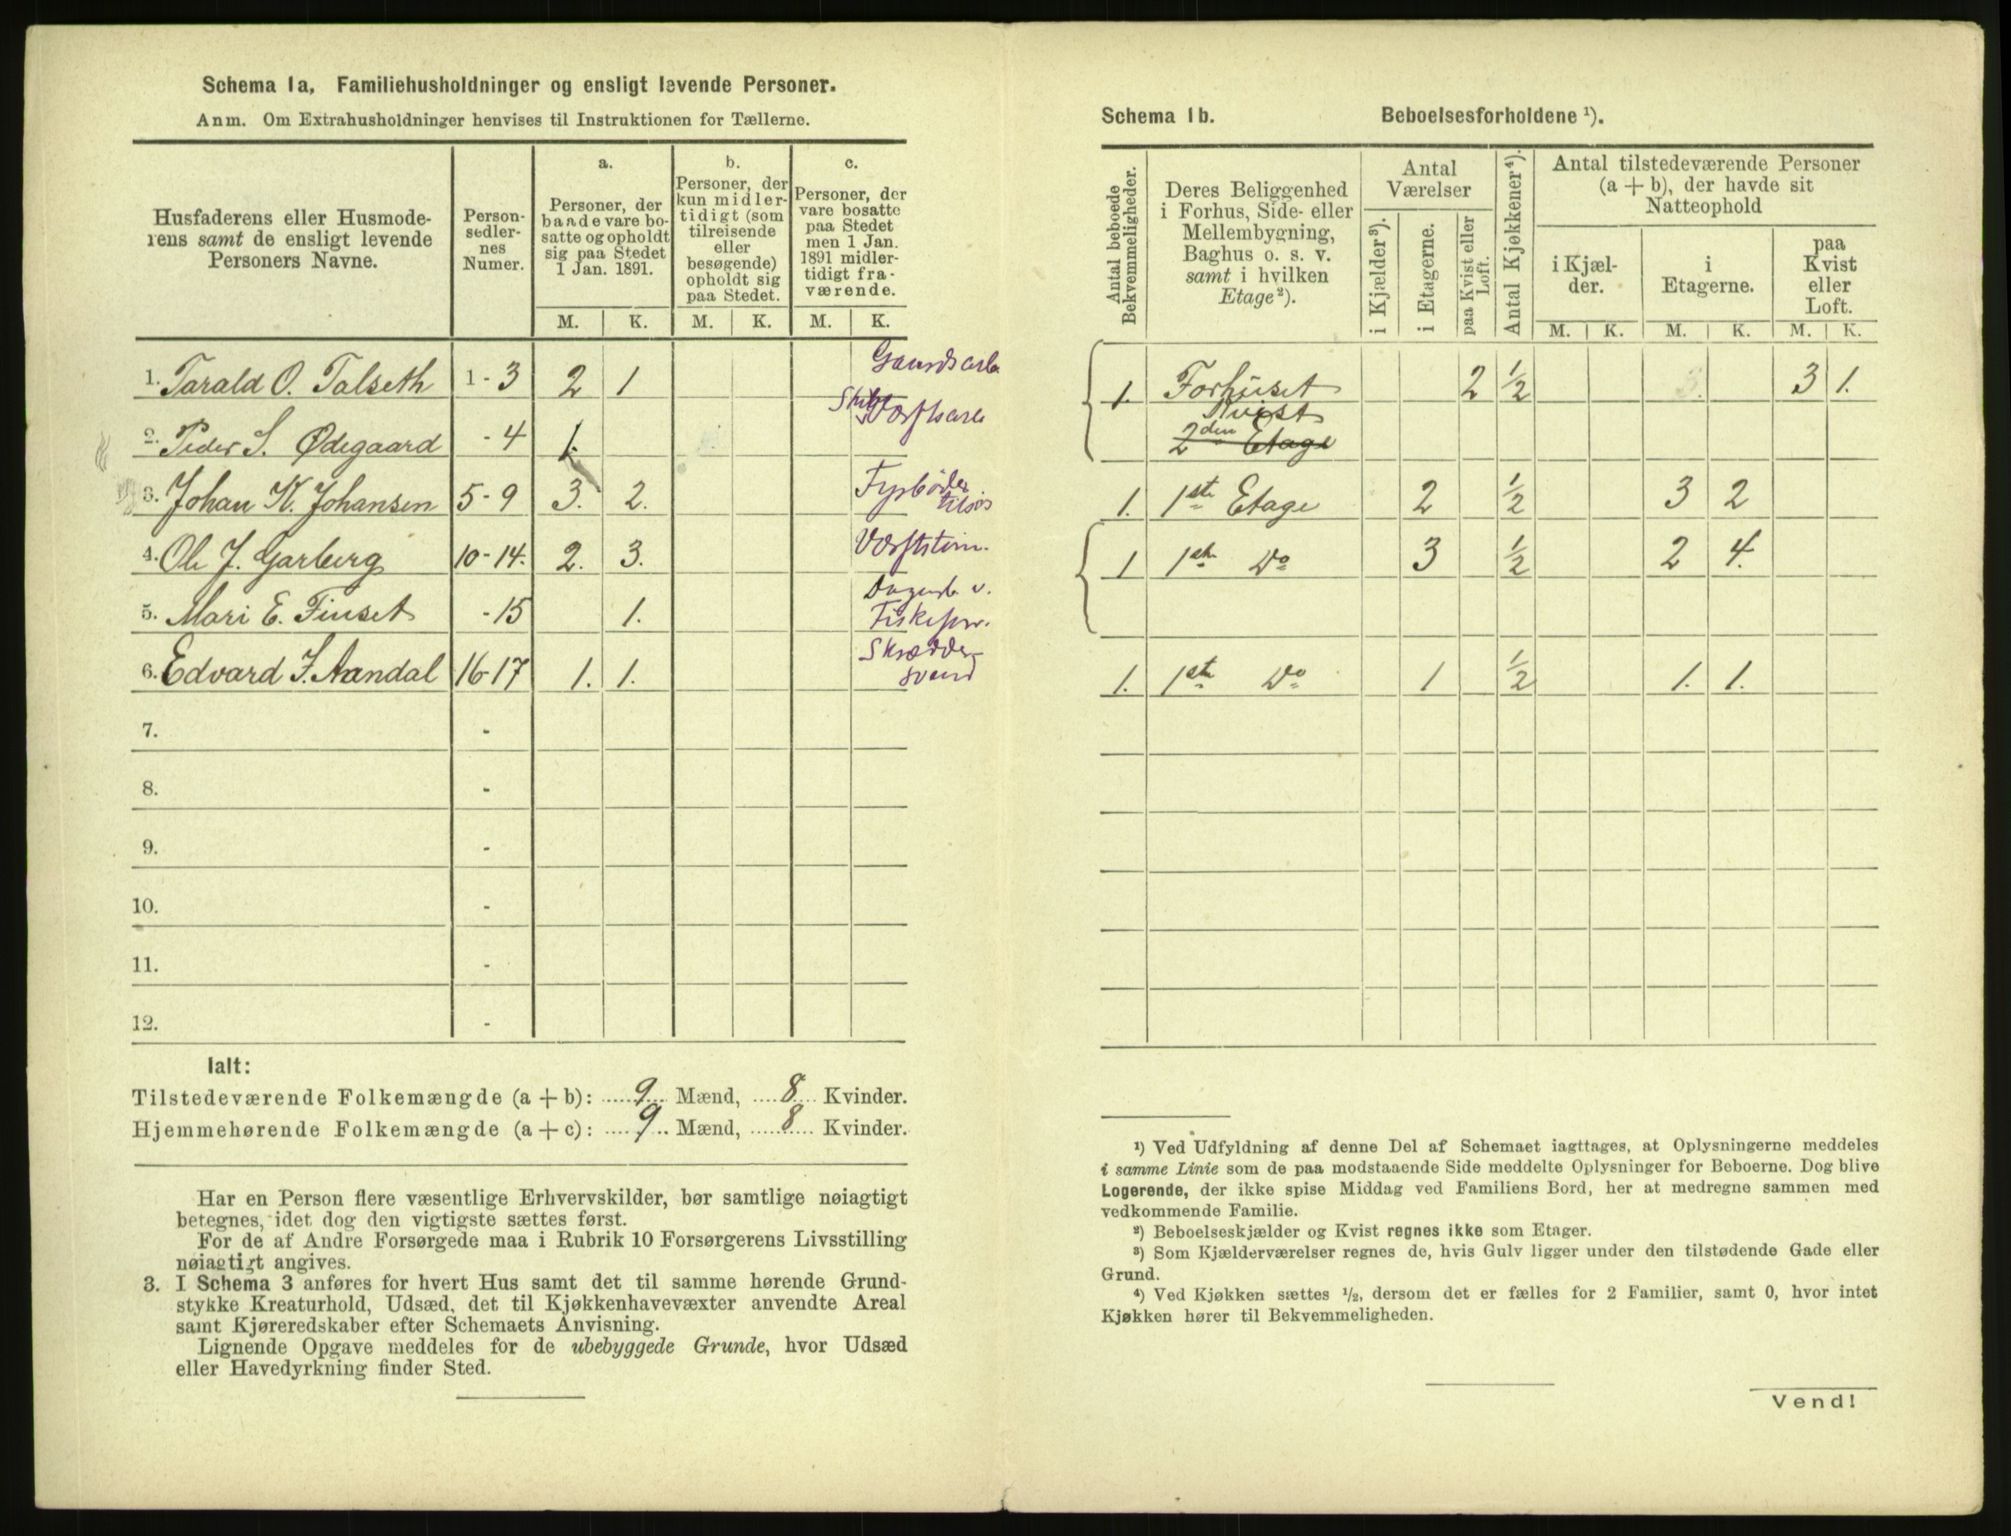 Schema 1a, Familiehusholdninger og ensligt levende Personer.
Anm. Om Extrahusholdninger henvises til Instruktionen for Tællerne.
Husfaderens eller Husmode-
rens samt de ensligt levende
Personers Navne.
Person-
sedler-
nes
Numer.
a.
Personer, der
baade vare bo-
satte og opholdt
sig paa Stedet
1 Jan. 1891.
b.
Personer, der
kun midler-
tidigt (som
tilreisende
eller
besøgende)
opholdt sig
paa Stedet.
c.
Personer, der
vare bosatte
paa Stedet
men 1 Jan.
1891 midler-
tidigt fra-
værende.
M. K. M. K. M. K.
1. Tarald O. Talseth 1 - 3 2 1
2. Peder S. Ødegaard - 4 1.
3. Johan K. Johansen 5 - 9 3. 2. Fyrbøder tilsøs
4. Ole J. Garberg 10 - 14. 2. 3.
5. Mari E. Finset - 15 1.
6. Edvard J. Aandal 16 - 17 1. 1. Skrædder-
svend
7. -
8. -
9. -
10. -
11. -
12. -
Ialt:
Tilstedeværende Folkemængde (a + b): 9 Mænd, 8 Kvinder.
Hjemmehørende Folkemængde (a + c): 9 Mænd, 8 Kvinder.
Har en Person flere væsentlige Erhvervskilder, bør samtlige nøiagtigt
betegnes, idet dog den vigtigste sættes først.
For de af Andre Forsørgede maa i Rubrik 10 Forsørgerens Livsstilling
nøiagtigt angives.
3. I Schema 3 anføres for hvert Hus samt det til samme hørende Grund-
stykke Kreaturhold, Udsæd, det til Kjøkkenhavevæxter anvendte Areal
samt Kjøreredskaber efter Schemaets Anvisning.
Lignende Opgave meddeles for de ubebyggede Grunde, hvor Udsæd
eller Havedyrkning finder Sted.
Schema 1b. Beboelsesforholdene ¹).
Antal beboede
Bekvemmeligheder.
Deres Beliggenhed
i Forhus, Side- eller
Mellembygning,
Baghus o. s. v.
samt i hvilken
Etage ²).
Antal
Værelser
i Kjælder ³).
i Etagerne.
paa Kvist eller
Loft.
Antal Kjøkkener ⁴).
Antal tilstedeværende Personer
(a + b), der havde sit
Natteophold
i Kjæl-
der.
i
Etagerne.
paa
Kvist
eller
Loft.
M. K. M. K. M. K.
1. Forhuset 2 ½ 3 1.
Kvist
2den Etage
1. 1ste Etage 2 ½ 3 2
1 1ste Do 3 ½ 2 4.
1. 1ste Do 1 ½ 1. 1.
¹) Ved Udfyldning af denne Del af Schemaet iagttages, at Oplysningerne meddeles
i samme Linie som de paa modstaaende Side meddelte Oplysninger for Beboerne. Dog blive
Logerende, der ikke spise Middag ved Familiens Bord, her at medregne sammen med
vedkommende Familie.
²) Beboelseskjælder og Kvist regnes ikke som Etager.
³) Som Kjælderværelser regnes de, hvis Gulv ligger under den tilstødende Gade eller
Grund.
⁴) Ved Kjøkken sættes ½, dersom det er fælles for 2 Familier, samt 0, hvor intet
Kjøkken hører til Bekvemmeligheden.
Vend!